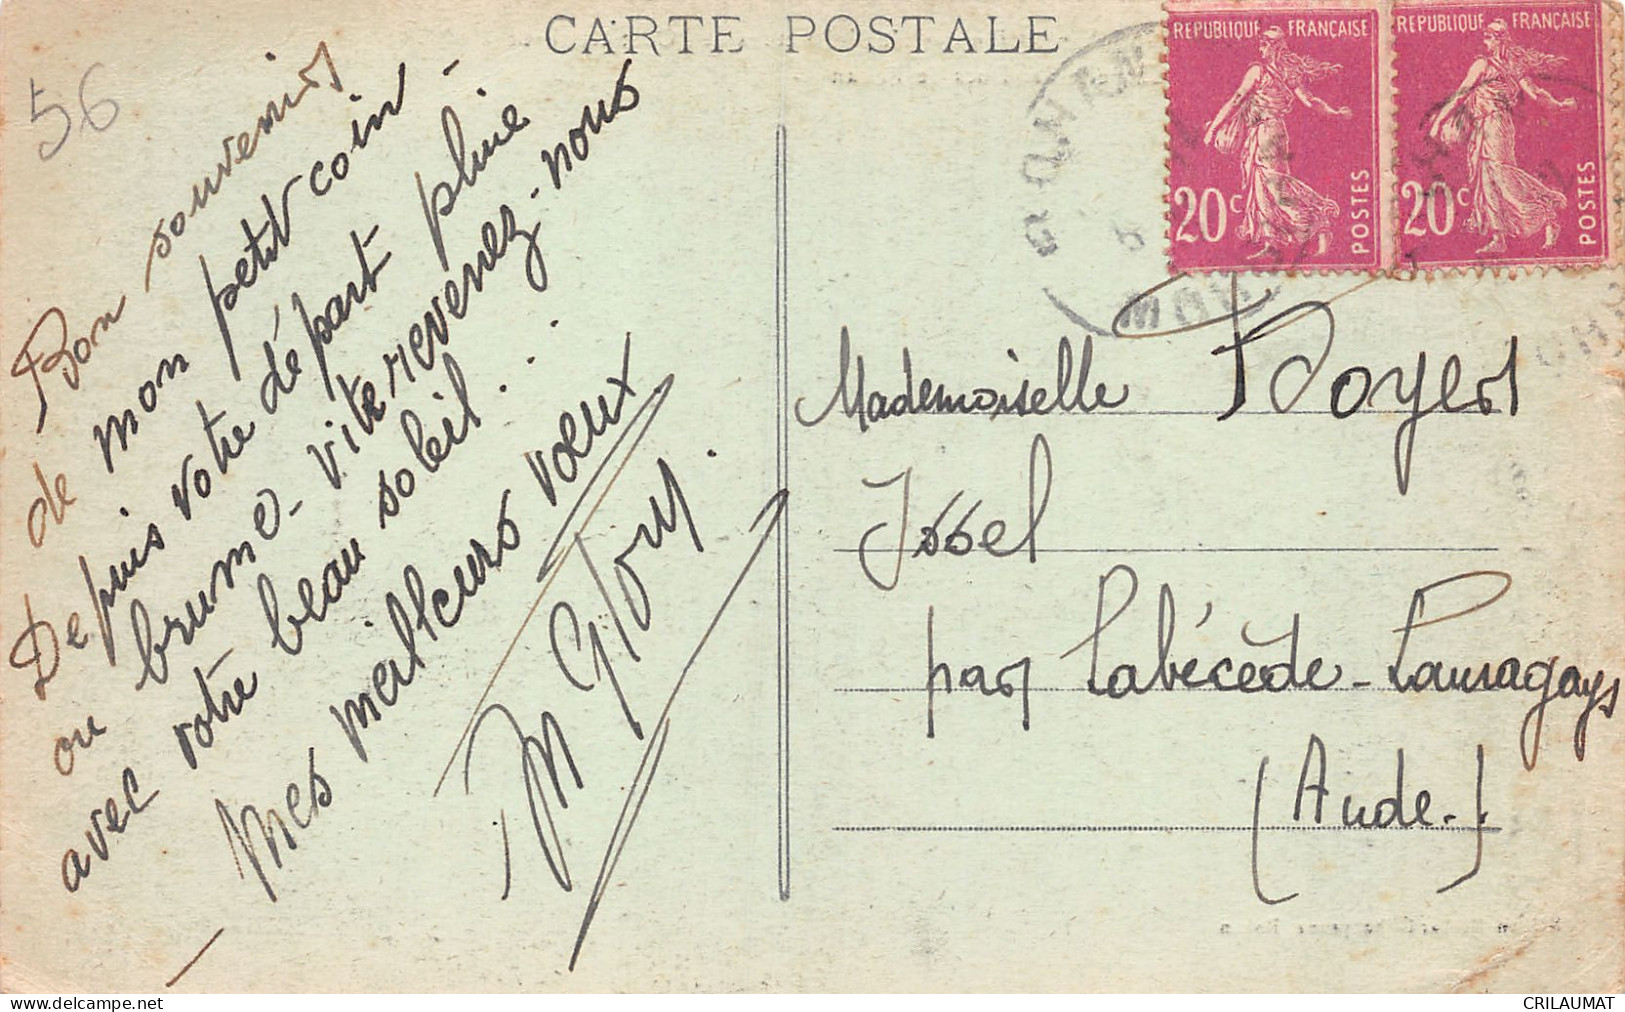 CARTE POSTALE
56
Bon souvenir
de mon petit coin -
Depuis votre départ pluie
ou brume - vite revenez-nous
avec votre beau soleil...
Mes meilleurs vœux
REPUBLIQUE FRANÇAISE
20c
POSTES
REPUBLIQUE FRANÇAISE
20c
POSTES
Mademoiselle Royer
Issel
par Labécède-Lauragays
(Aude.)
www.delcampe.net
CRILAUMAT